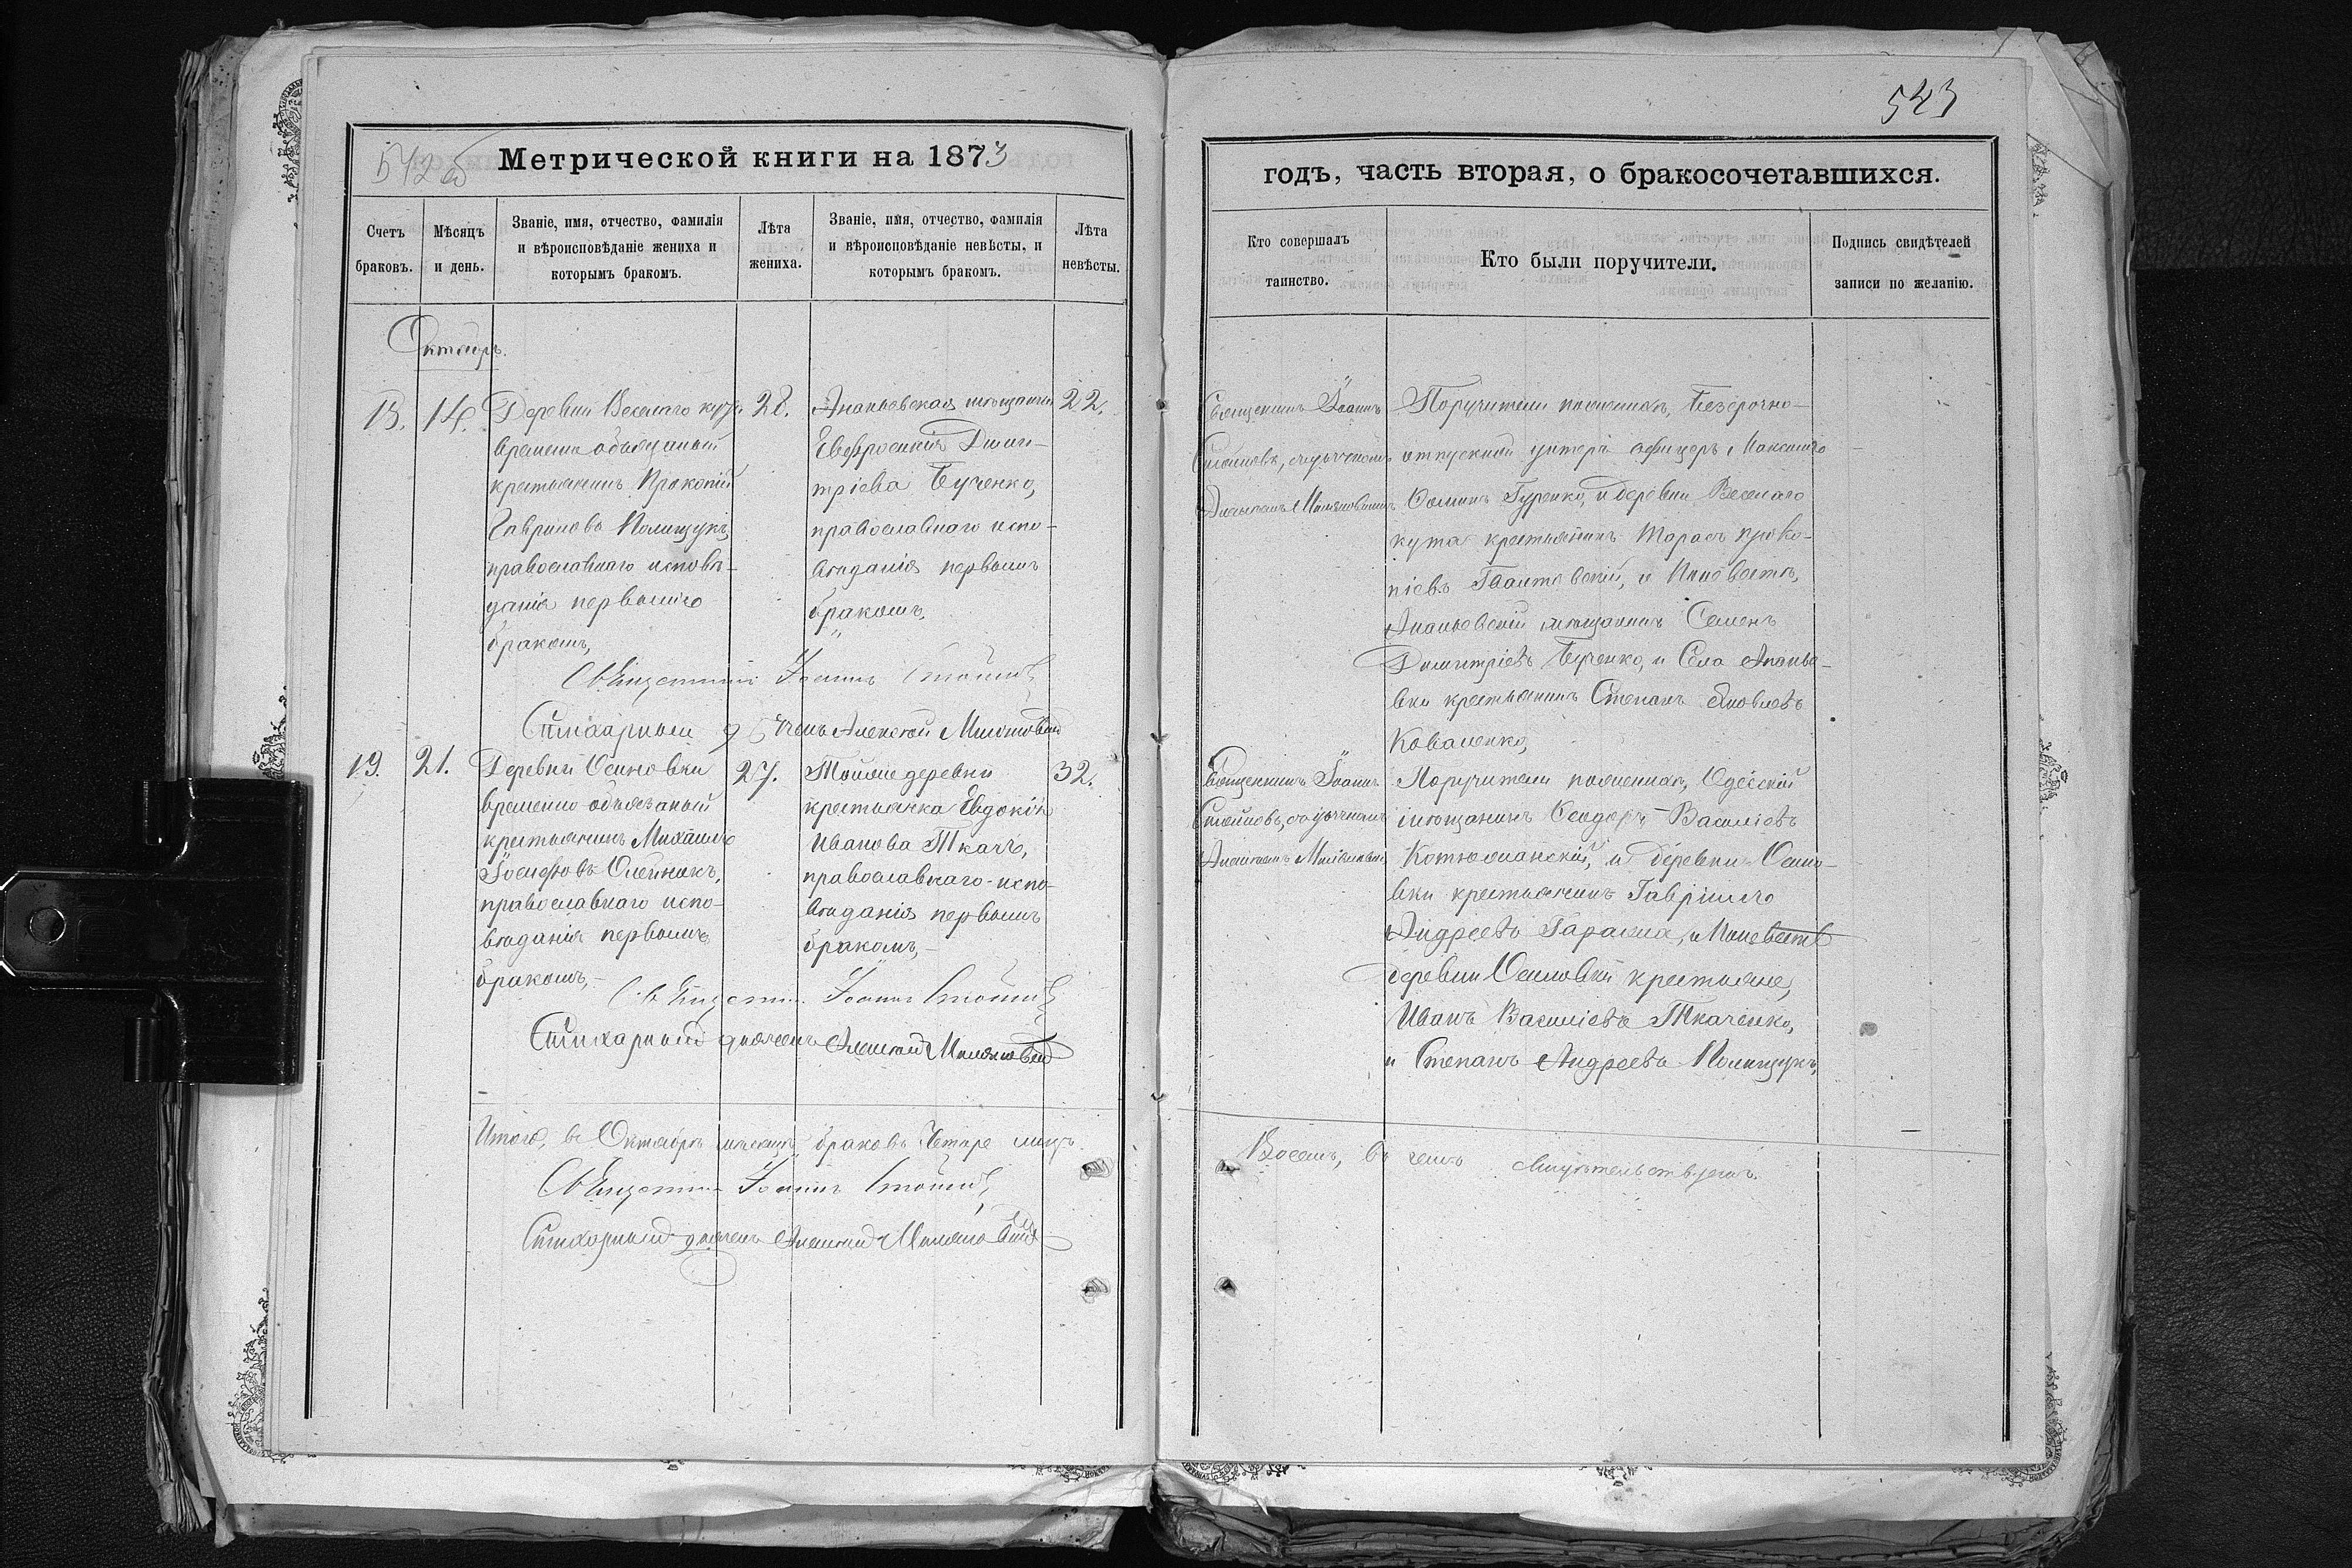 542 об
Метрической книги на 1873
Счетъ браковъ.
Мѣсяцъ и день.
Званіе, имя, отчество, фамилія
и вѣроисповѣданіе жениха и
которымъ бракомъ.
Лѣта жениха.
Званіе, имя, отчество, фамилія
и вѣроисповѣданіе невѣсты, и
которымъ бракомъ.
Лѣта невѣсты.
Октябрь.
14.
Деревни Веселаго кута
временно обязаный
крестьянинъ Прокопій
Гавриловъ Полищукъ,
православнаго исповѣ-
данія первымъ
бракомъ,
28.
Ананьевская мѣщанка
Евфросинія Дими-
тріева Бученко,
православнаго испо-
вѣданія первымъ
бракомъ,
22.
Священникъ Іоаннъ
Стихарный дьячекъ Алексій
19.
21.
Деревни Осиновки
временно обязаный
крестьянинъ Михаилъ
Іосифовъ Олейникъ,
православнаго испо-
вѣданія первымъ
бракомъ,-
27.
Тойже деревни
крестьянка Евдокія
Иванова Ткачъ,
православнаго испо-
вѣданія первымъ
бракомъ,-
32.
Священникъ Іоаннъ
Стихарный дьячекъ Алексій
Итого, въ Октябрѣ мѣсяцѣ, браковъ Четыре лицъ
Священникъ Іоаннъ
Стихарный дьячекъ Алексій
543
годъ, часть вторая, о бракосочетавшихся.
Кто совершалъ
таинство.
Кто были поручители.
Подпись свидѣтелей
записи по желанію.
Священникъ Іоаннъ
съ дьячкомъ
Алексѣемъ
Поручители по женихѣ, Безсрочно-
отпускной унтеръ офицеръ Максимъ
Фоминъ Гуренко, и деревни Веселаго
кута крестьянинъ Тарасъ Проко-
піевъ и по невѣстѣ,
Ананьевскій мѣщанинъ Семенъ
Димитріевъ Бученко, и Села Ананье-
вки крестьянинъ Степанъ Яковлевъ
Коваленко,
Священникъ Іоаннъ
съ дьячкомъ
Алексѣемъ
Поручители по женихѣ, Одесскій
мѣщанинъ Феодоръ Василіевъ
и деревни Осино-
вки крестьянинъ Гавріилъ
Андреевъ и по невѣстѣ
деревни Осиновки крестьяне,
Иванъ Василіевъ Ткаченко,
и Степанъ Андреевъ Полищукъ,
Восемь, въ чемъ свидѣтельствуемъ.